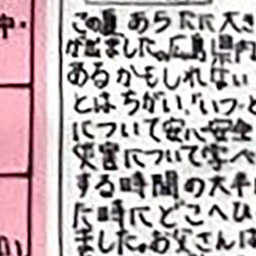 中・
この夏あらたに大き
が出ました。広島県内
あるかもしれない
とはちがい、いつ、ど
について安心安全
災害について学べ
する時間の大半
た時にどこへひ
ました。お父さんは